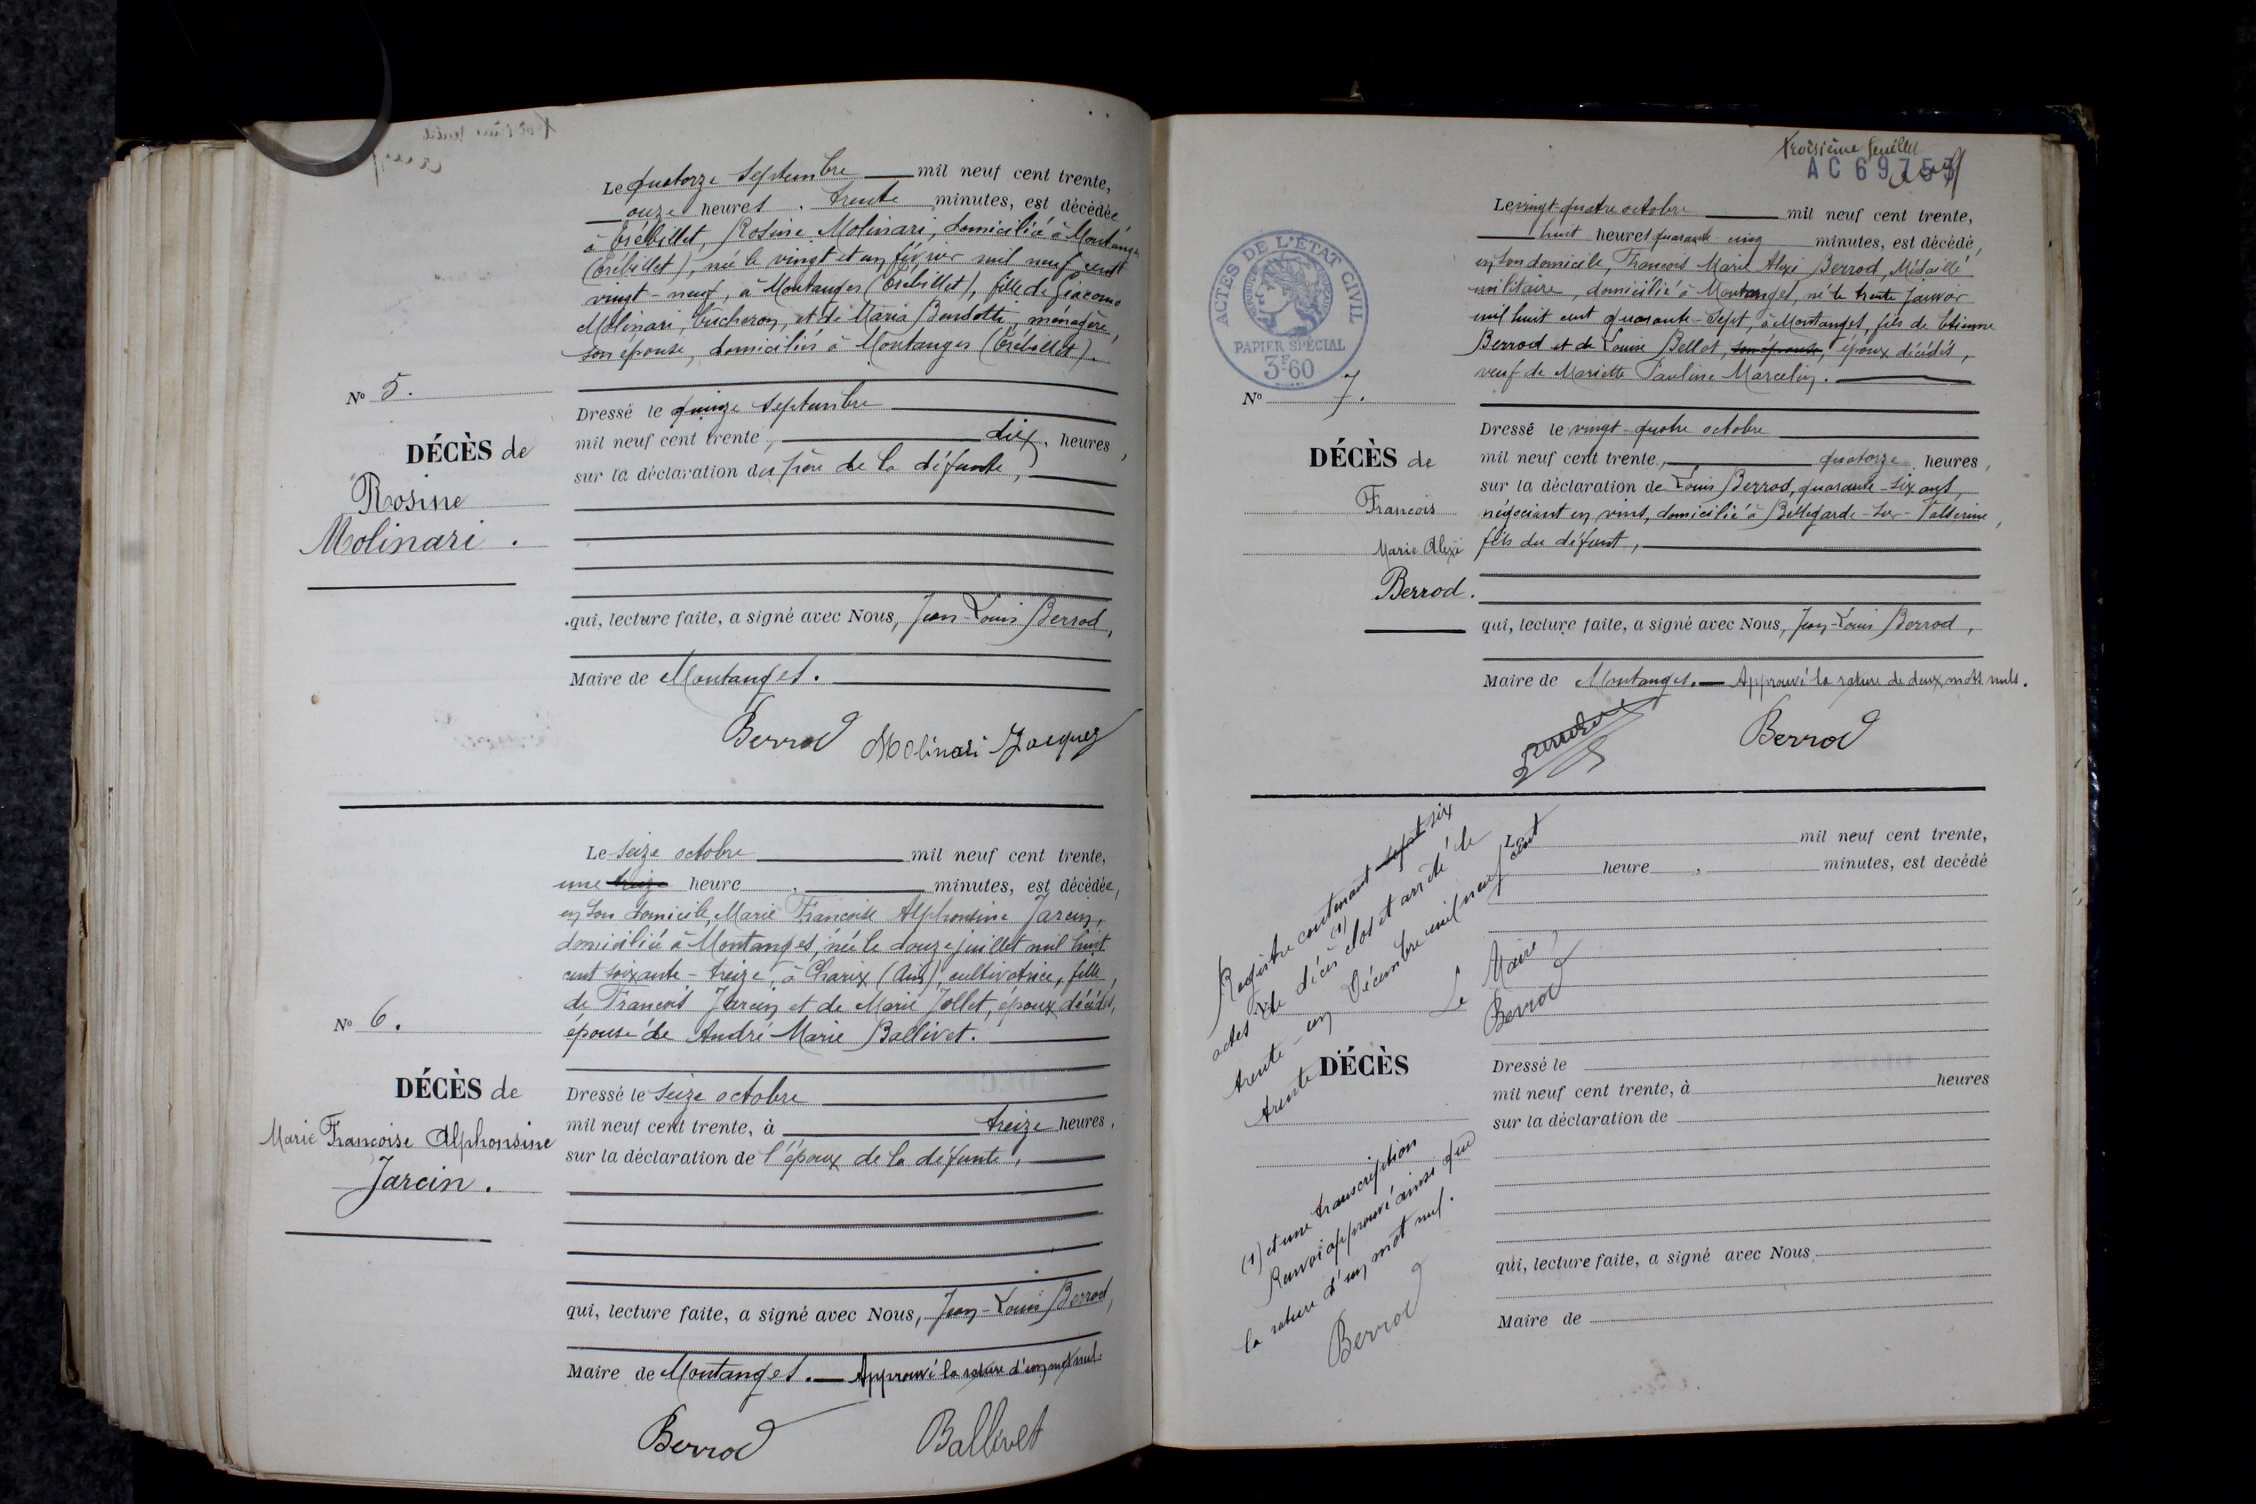 Le quatorze septembre mil neuf cent trente,
onze heures . trente minutes, est décédée
à Trébillet, Rosine Molinari, domiciliée à Montanges
(Trébillet), née le vingt et un février mil neuf cent
vingt-neuf, à Montanges (Trébillet), fille de Giacomo
Molinari, bûcheron, et de Maria Bendotti, ménagère,
son épouse, domiciliés à Montanges (Trébillet).
N° 5.
DÉCÈS de
Rosine
Molinari .
Dressé le quinze septembre
mil neuf cent trente, dix heures,
sur la déclaration du père de la défunte,
qui, lecture faite, a signé avec Nous, Jean-Louis Berrod,
Maire de Montanges.
Berrod Molinari Jacques
Le seize octobre mil neuf cent trente,
une treize heure . minutes, est décédée,
en son domicile, Marie Françoise Alphonsine Jarcin,
domiciliée à Montanges, née le douze juillet mil huit
cent soixante-treize, à Charix (Ain), cultivatrice, fille
de François Jarcin et de Marie Jollet, époux décédés,
épouse de André Marie Ballivet.
N° 6.
DÉCÈS de
Marie Françoise Alphonsine
Jarcin.
Dressé le seize octobre
mil neuf cent trente, à treize heures,
sur la déclaration de l'époux de la défunte,
qui, lecture faite, a signé avec Nous, Jean-Louis Berrod,
Maire de Montanges. Approuvé la rature d'un mot nul.
Berrod Ballivet
troisième feuillet
AC 69757
ACTES DE L'ÉTAT CIVIL
PAPIER SPÉCIAL
3F60
Le vingt-quatre octobre mil neuf cent trente,
huit heures quarante-cinq minutes, est décédé,
en son domicile, François Marie Alexi Berrod, Médaillé
militaire, domicilié à Montanges, né le trente janvier
mil huit cent quarante-sept, à Montanges, fils de Etienne
Berrod et de Louise Bellot, son épouse, époux décédés,
veuf de Mariette Pauline Marcelin.
N° 7.
DÉCÈS de
François
Marie Alexi
Berrod.
Dressé le vingt-quatre octobre
mil neuf cent trente, quatorze heures,
sur la déclaration de Louis Berrod, quarante-six ans,
négociant en vins, domicilié à Bellegarde-sur-Valserine,
fils du défunt,
qui, lecture faite, a signé avec Nous, Jean-Louis Berrod,
Maire de Montanges. Approuvé la rature de deux mots nuls.
Berrod
Registre contenant sept six
actes de décès (1) clos et arrêté le
trente-un Décembre mil neuf cent
trente
Le Maire
Berrod
Le mil neuf cent trente,
heure , minutes, est decédé
DÉCÈS
Dressé le
mil neuf cent trente, à heures
sur la déclaration de
(1) et une transcription
Renvoi approuvé ainsi que
la rature d'un mot nul.
Berrod
qui, lecture faite, a signé avec Nous
Maire de